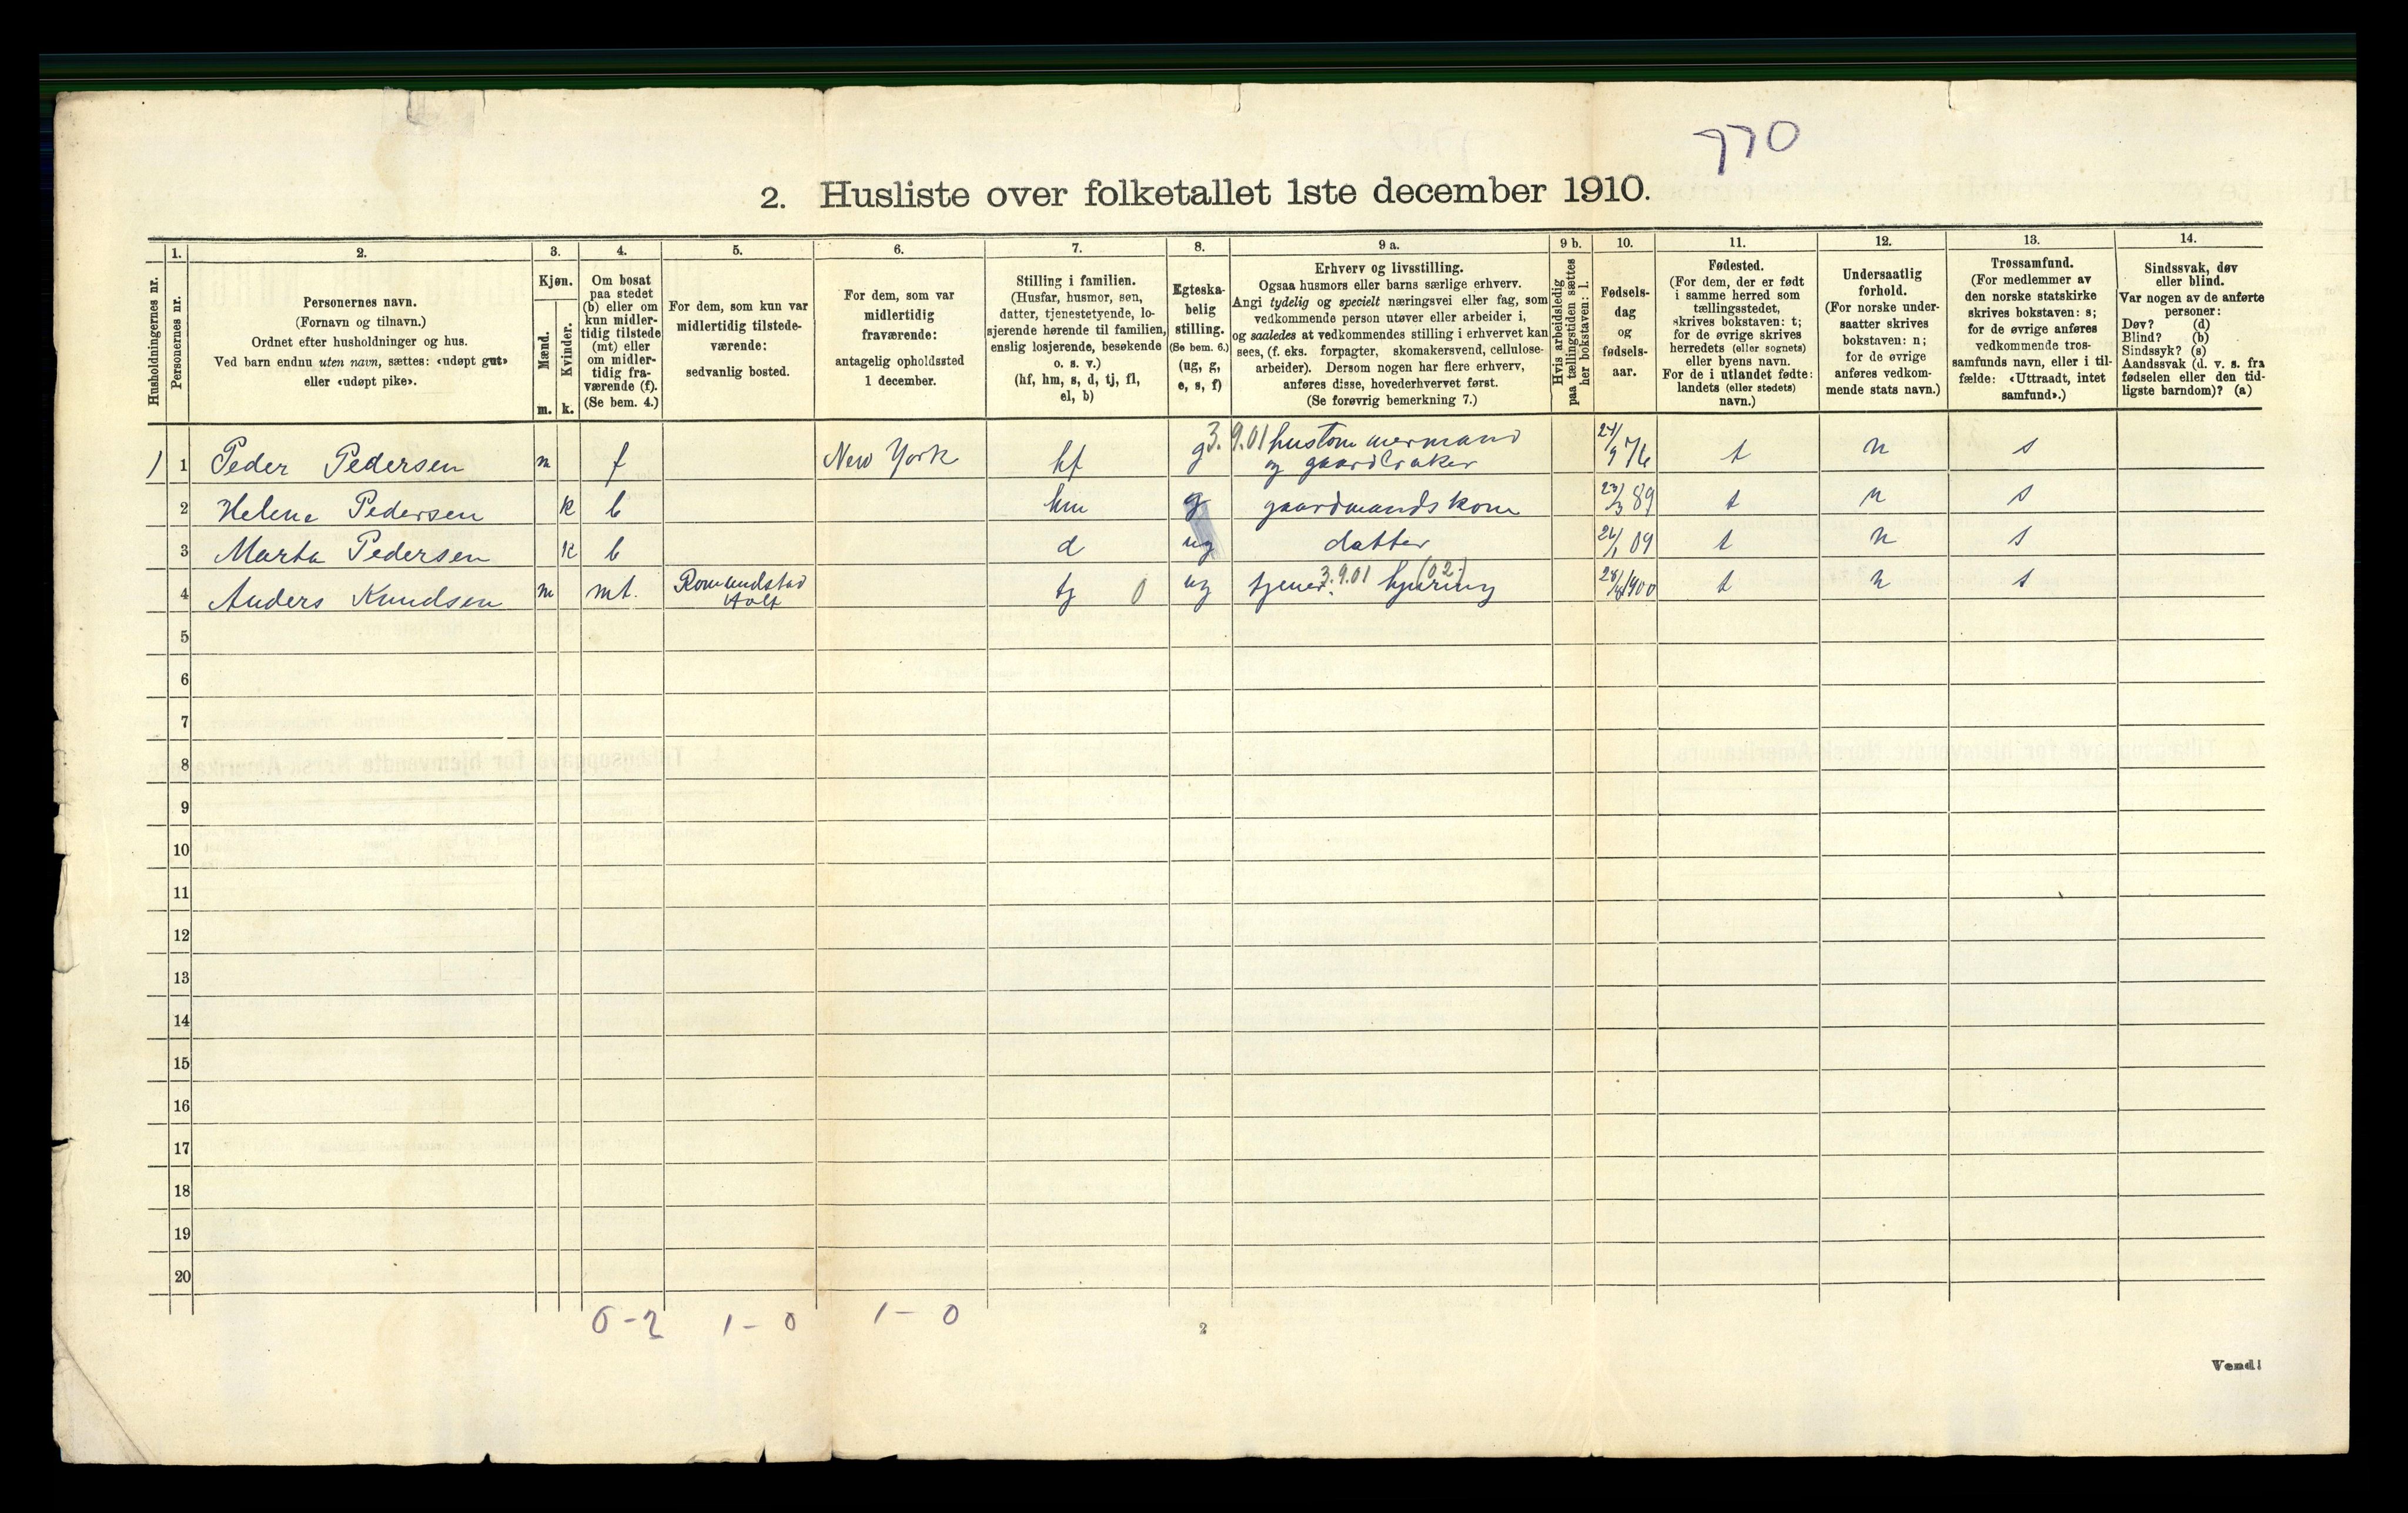 770
2. Husliste over folketallet 1ste december 1910.
Husholdningernes nr.
1.
Personernes nr.
2.
Personernes navn.
(Fornavn og tilnavn.)
Ordnet efter husholdninger og hus.
Ved barn endnu uten navn, sættes: «udøpt gut»
eller «udøpt pike».
3.
Kjøn.
Mænd.
m.
Kvinder.
k.
4.
Om bosat
paa stedet
(b) eller om
kun midler-
tidig tilstede
(mt) eller
om midler-
tidig fra-
værende (f).
(Se bem. 4.)
5.
For dem, som kun var
midlertidig tilstede-
værende:
sedvanlig bosted.
6.
For dem, som var
midlertidig
fraværende:
antagelig opholdssted
1 december.
7.
Stilling i familien.
(Husfar, husmor, søn,
datter, tjenestetyende, lo-
sjerende hørende til familien,
enslig losjerende, besøkende
o. s. v.)
(hf, hm, s, d, tj, fl,
el, b)
8.
Egteska-
belig
stilling.
(Se bem. 6.)
(ug, g,
e, s, f)
9 a.
Erhverv og livsstilling.
Ogsaa husmors eller barns særlige erhverv.
Angi tydelig og specielt næringsvei eller fag, som
vedkommende person utøver eller arbeider i,
og saaledes at vedkommendes stilling i erhvervet kan
sees, (f. eks. forpagter, skomakersvend, cellulose-
arbeider). Dersom nogen har flere erhverv,
anføres disse, hovederhvervet først.
(Se forøvrig bemerkning 7.)
9 b.
Hvis arbeidsledig
paa tællingstiden sættes
her bokstaven: l.
10.
Fødsels-
dag
og
fødsels-
aar.
11.
Fødested.
(For dem, der er født
i samme herred som
tællingsstedet,
skrives bokstaven: t;
for de øvrige skrives
herredets (eller sognets)
eller byens navn.
For de i utlandet fødte:
landets (eller stedets)
navn.)
12.
Undersaatlig
forhold.
(For norske under-
saatter skrives
bokstaven: n;
for de øvrige
anføres vedkom-
mende stats navn.)
13.
Trossamfund.
(For medlemmer av
den norske statskirke
skrives bokstaven: s;
for de øvrige anføres
vedkommende tros-
samfunds navn, eller i til-
fælde: «Uttraadt, intet
samfund».)
14.
Sindssvak, døv
eller blind.
Var nogen av de anførte
personer:
Døv? (d)
Blind? (b)
Sindssyk? (s)
Aandssvak (d. v. s. fra
fødselen eller den tid-
ligste barndom)? (a)
1 1 Peder Pedersen m f New York hf g 3.9.01 hustømmermand
og gaardbruker t n s
2 Helene Pedersen k b hm g gaardmandskone 23/3 89 t n s
3 Marta Pedersen k b d ug datter 09 t n s
4 Anders Knudsen m mt. Romundstad
Holt tj 0 ug tjener 3.9.01 hjuring (02.) 1900 t n s
5
6
7
8
9
10
11
12
13
14
15
16
17
18
19
20
0-2 1-0 1-0
2
Vend!